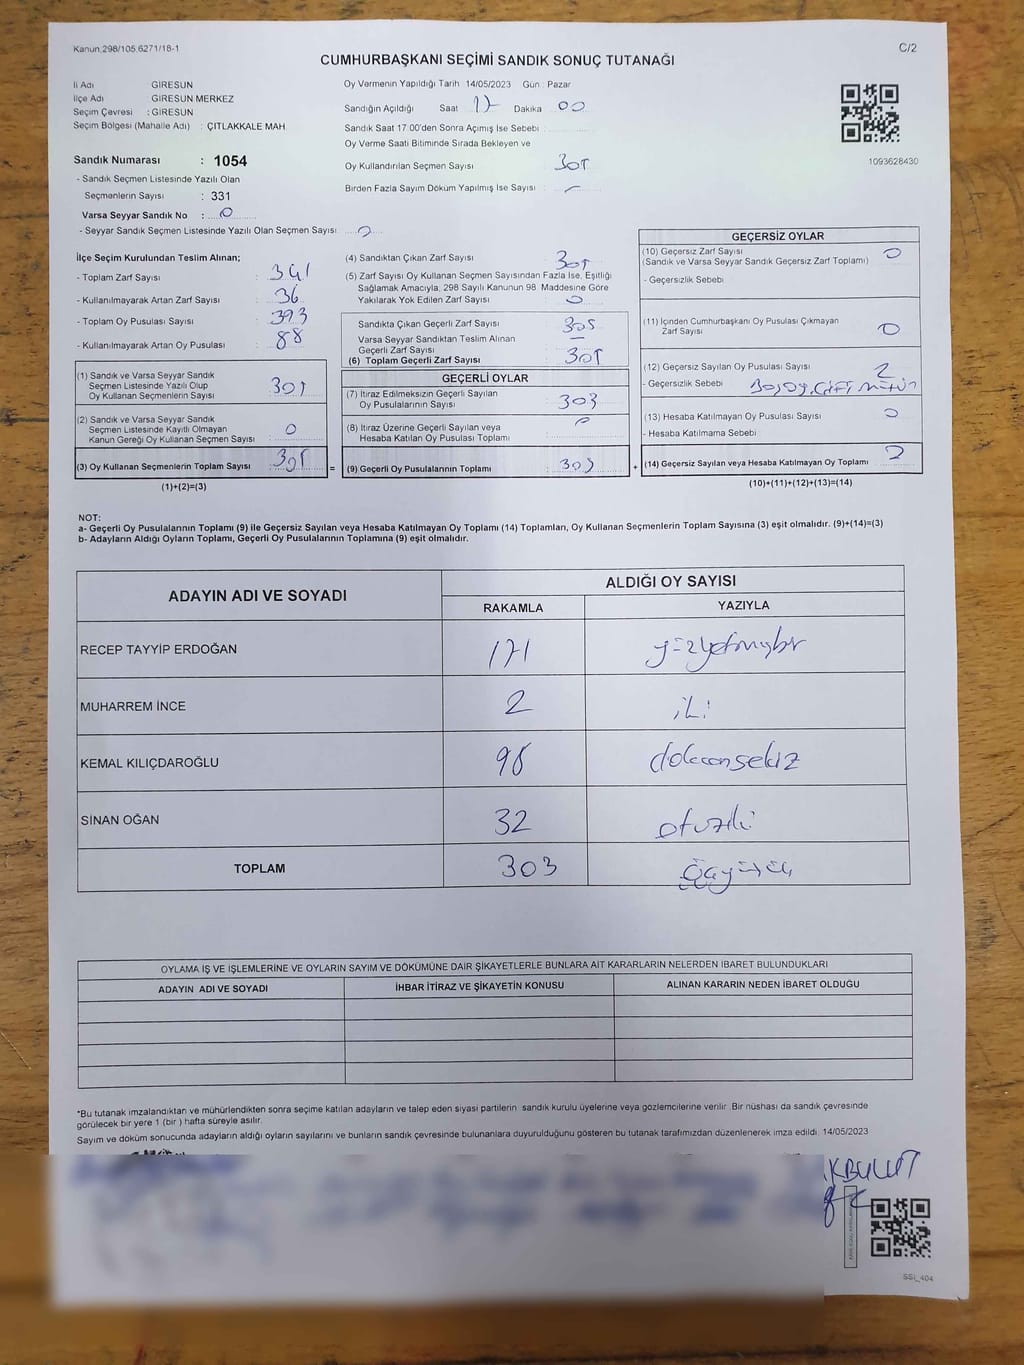 Kanun 298/105 6271/18-1
C/2
CUMHURBAŞKANI SEÇİMİ SANDIK SONUÇ TUTANAĞI
İl Adı GİRESUN
İlçe Adı GİRESUN MERKEZ
Seçim Çevresi : GİRESUN
Seçim Bölgesi (Mahalle Adı) : ÇITLAKKALE MAH.
Sandık Numarası : 1054
- Sandık Seçmen Listesinde Yazılı Olan
Seçmenlerin Sayısı : 331
Varsa Seyyar Sandık No : 0
- Seyyar Sandık Seçmen Listesinde Yazılı Olan Seçmen Sayısı 0
Oy Vermenin Yapıldığı Tarih 14/05/2023 Gün : Pazar
Sandığın Açıldığı Saat 17 Dakika 00
Sandık Saat 17:00'den Sonra Açımış İse Sebebi
Oy Verme Saati Bitiminde Sırada Bekleyen ve
Oy Kullandırılan Seçmen Sayısı 305
Birden Fazla Sayım Döküm Yapılmış İse Sayısı : -
1093628430
İlçe Seçim Kurulundan Teslim Alınan;
- Toplam Zarf Sayısı : 341
- Kullanılmayarak Artan Zarf Sayısı : 36
- Toplam Oy Pusulası Sayısı : 393
- Kullanılmayarak Artan Oy Pusulası : 88
(1) Sandık ve Varsa Seyyar Sandık
Seçmen Listesinde Yazılı Olup
Oy Kullanan Seçmenlerin Sayısı 305
(2) Sandık ve Varsa Seyyar Sandık
Seçmen Listesinde Kayıtlı Olmayan
Kanun Gereği Oy Kullanan Seçmen Sayısı : 0
(3) Oy Kullanan Seçmenlerin Toplam Sayısı : 305
(1)+(2)=(3)
(4) Sandıktan Çıkan Zarf Sayısı 305
(5) Zarf Sayısı Oy Kullanan Seçmen Sayısından Fazla İse, Eşitliği
Sağlamak Amacıyla, 298 Sayılı Kanunun 98. Maddesine Göre
Yakılarak Yok Edilen Zarf Sayısı : 0
Sandıkta Çıkan Geçerli Zarf Sayısı 305
Varsa Seyyar Sandıktan Teslim Alınan
Geçerli Zarf Sayısı -
(6) Toplam Geçerli Zarf Sayısı 305
GEÇERLİ OYLAR
(7) İtiraz Edilmeksizin Geçerli Sayılan
Oy Pusulalarının Sayısı : 303
(8) İtiraz Üzerine Geçerli Sayılan veya
Hesaba Katılan Oy Pusulası Toplamı :
= (9) Geçerli Oy Pusulalarının Toplamı : 303
GEÇERSİZ OYLAR
(10) Geçersiz Zarf Sayısı 0
(Sandık ve Varsa Seyyar Sandık Geçersiz Zarf Toplamı)
- Geçersizlik Sebebi
(11) İçinden Cumhurbaşkanı Oy Pusulası Çıkmayan
Zarf Sayısı 0
(12) Geçersiz Sayılan Oy Pusulası Sayısı 2
- Geçersizlik Sebebi
(13) Hesaba Katılmayan Oy Pusulası Sayısı 0
- Hesaba Katılmama Sebebi
+ (14) Geçersiz Sayılan veya Hesaba Katılmayan Oy Toplamı 2
(10)+(11)+(12)+(13)=(14)
NOT:
a- Geçerli Oy Pusulalarının Toplamı (9) ile Geçersiz Sayılan veya Hesaba Katılmayan Oy Toplamı (14) Toplamları, Oy Kullanan Seçmenlerin Toplam Sayısına (3) eşit olmalıdır. (9)+(14)=(3)
b- Adayların Aldığı Oyların Toplamı, Geçerli Oy Pusulalarının Toplamına (9) eşit olmalıdır.
ADAYIN ADI VE SOYADI
ALDIĞI OY SAYISI
RAKAMLA YAZIYLA
RECEP TAYYİP ERDOĞAN 171 yüzyetmişbir
MUHARREM İNCE 2 iki
KEMAL KILIÇDAROĞLU 98 doksansekiz
SİNAN OĞAN 32 otuziki
TOPLAM 303 üçyüzüç
OYLAMA İŞ VE İŞLEMLERİNE VE OYLARIN SAYIM VE DÖKÜMÜNE DAİR ŞİKAYETLERLE BUNLARA AİT KARARLARIN NELERDEN İBARET BULUNDUKLARI
ADAYIN ADI VE SOYADI İHBAR İTİRAZ VE ŞİKAYETİN KONUSU ALINAN KARARIN NEDEN İBARET OLDUĞU
*Bu tutanak imzalandıktan ve mühürlendikten sonra seçime katılan adayların ve talep eden siyasi partilerin sandık kurulu üyelerine veya gözlemcilerine verilir. Bir nüshası da sandık çevresinde
görülecek bir yere 1 (bir ) hafta süreyle asılır.
Sayım ve döküm sonucunda adayların aldığı oyların sayılarını ve bunların sandık çevresinde bulunanlara duyurulduğunu gösteren bu tutanak tarafımızdan düzenlenerek imza edildi. 14/05/2023
AKBULUT
SSI_404